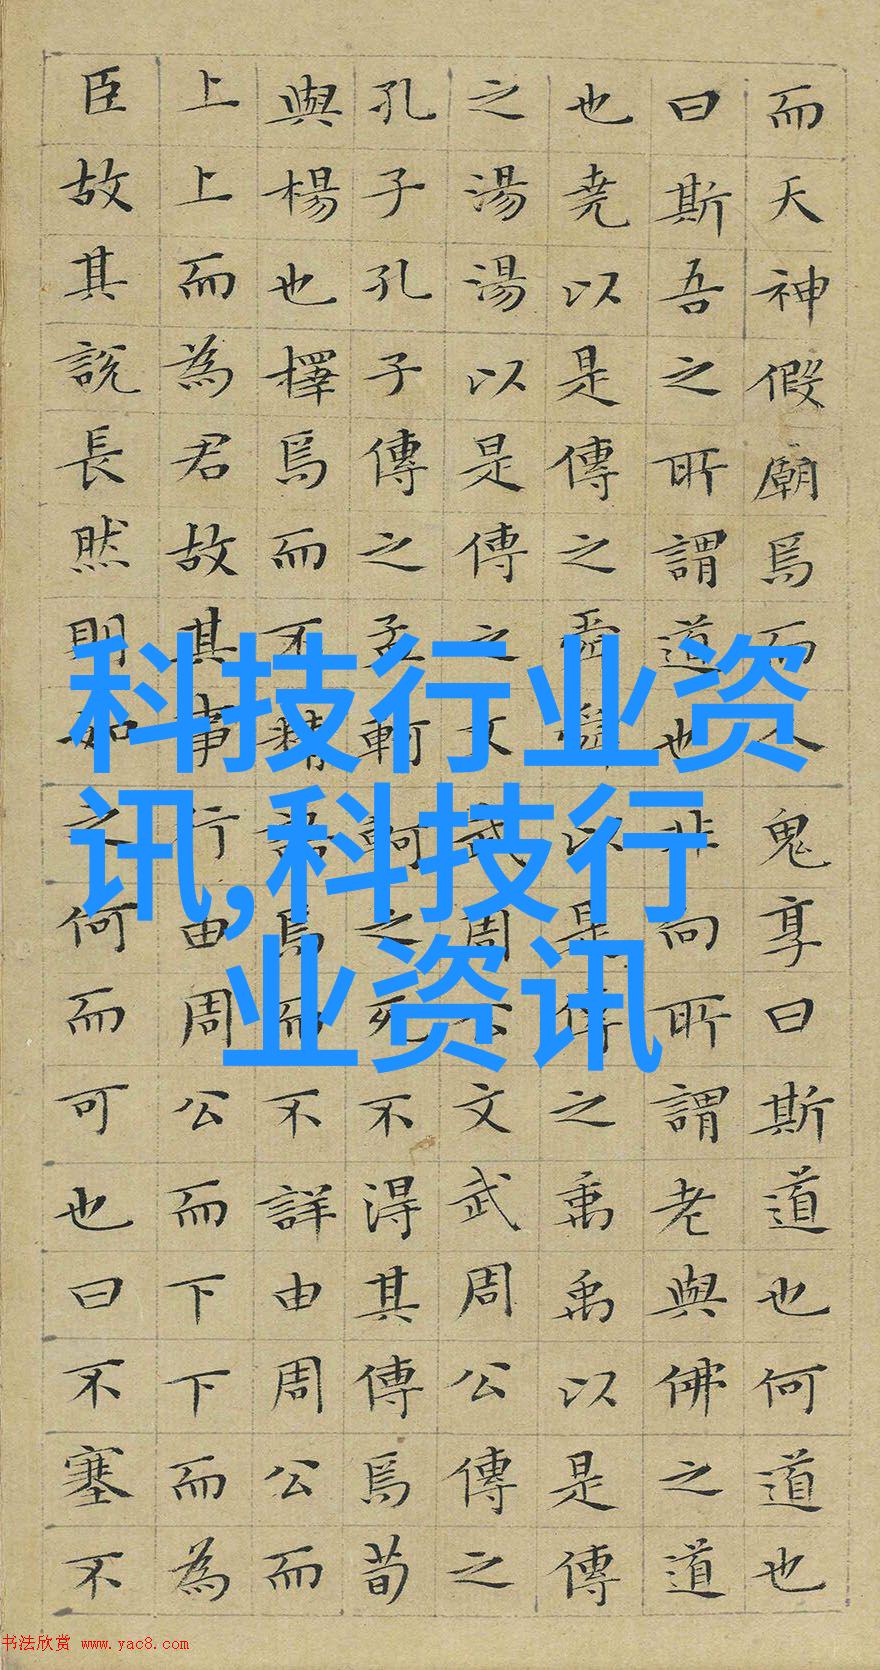 而天神假廟焉而人鬼享曰斯道也何道也
曰斯吾之所謂道也非向所謂老與佛之道
也堯以是傳之舜舜以是傳之禹禹以是傳
之湯湯以是傳之文武周公文武周公傳之
孔子孔子傳之孟軻軻之死不得其傳焉荀
與楊也擇焉而不精語焉而不詳由周公而
上上而為君故其事行由周公而下下而為
臣故其說長然則如之何而可也曰不塞不
科技行业资
讯,科技行
业资讯
书法欣赏 www.yac8.com